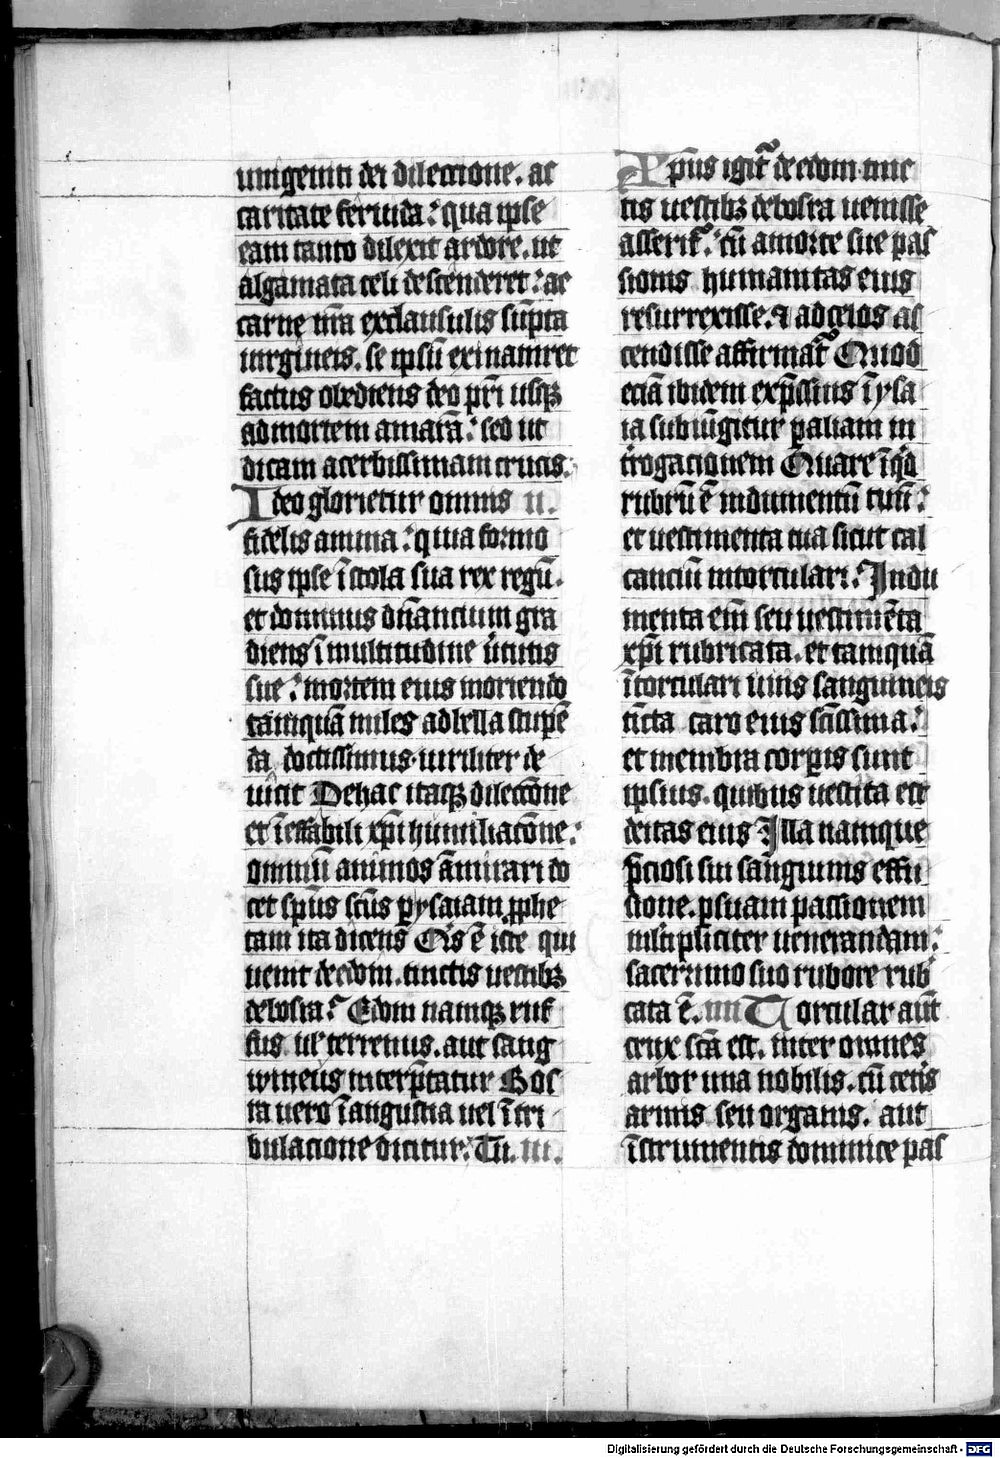 unigeniti dei dileccione. ac
caritate feruida: qua ipse
eam tanto dilexit ardore. ut
algamata celi descenderet: ac
carne nr̄a exclausulis sūpta
uirgineis. se ipsū exinaniret
factus obediens deo pr̄i usqꝫ
ad mortem amarā: sed ut
dicam acerbissimam crucis:
Ideo glorietur omnis ii.
fidelis anima: quia formo
sus ipse ī stola sua rex regū.
et dominus dn̄ancium gra
diens ī multitudine ūtutis
sue: mortem eius moriendo
tamquā miles ad bella stupē
da doctissimus. uiriliter de
uicit Dehac itaqꝫ dileccōne
et īeffabili xp̄i humiliacōne:
omniū animos āmirari do
cet sp̄us sc̄us p ysaiam ꝓphe
tam ita dicens Q̄is ē iste qui
uenit deedom. tinctis uestibꝫ
debosra: Edom namqꝫ ruf
fus ul' terrenus. aut sang
wineus interp̄tatur Bos
ra uero ī angustia uel ī tri
bulacione dicitur. Tū. iii.
Xp̄us igit᷑ de edom tinc
tis uestibꝫ debosra uenisse
asserit᷑: cū a morte sue pas
sionis humanitas eius
resurrexisse. ⁊ ad celos as
cendisse affirmat᷑ Quod
eciā ibidem exp̄ssius ī ysa
ia subiūgitur p aliam in
trogacionem Quare īqd̄
rubrū ē indumentū tuū:
et uestimenta tua sicut cal
canciū intorculari: Indu
menta em̄ seu uestimēta
xp̄i rubricata. et tamquā
ī torculari uuis sanguineis
tīcta caro eius sc̄issima:
et membra corꝑis sunt
ipsius. quibus uestita est
deitas eius Illa namque
p̄ciosi sui sanguinis effu
sione. p suam passionem
ml'tipliciter uenerandam:
sacerrimo suo rubore rub
cata ē. iiii Torcular aūt
crux sc̄a est. inter omnes
arbor una nobilis. cū cet̄is
armis seu organis. aut
īstrumentis dominice pas
Digitalisierung gefördert durch die Deutsche Forschungsgemeinschaft - DFG